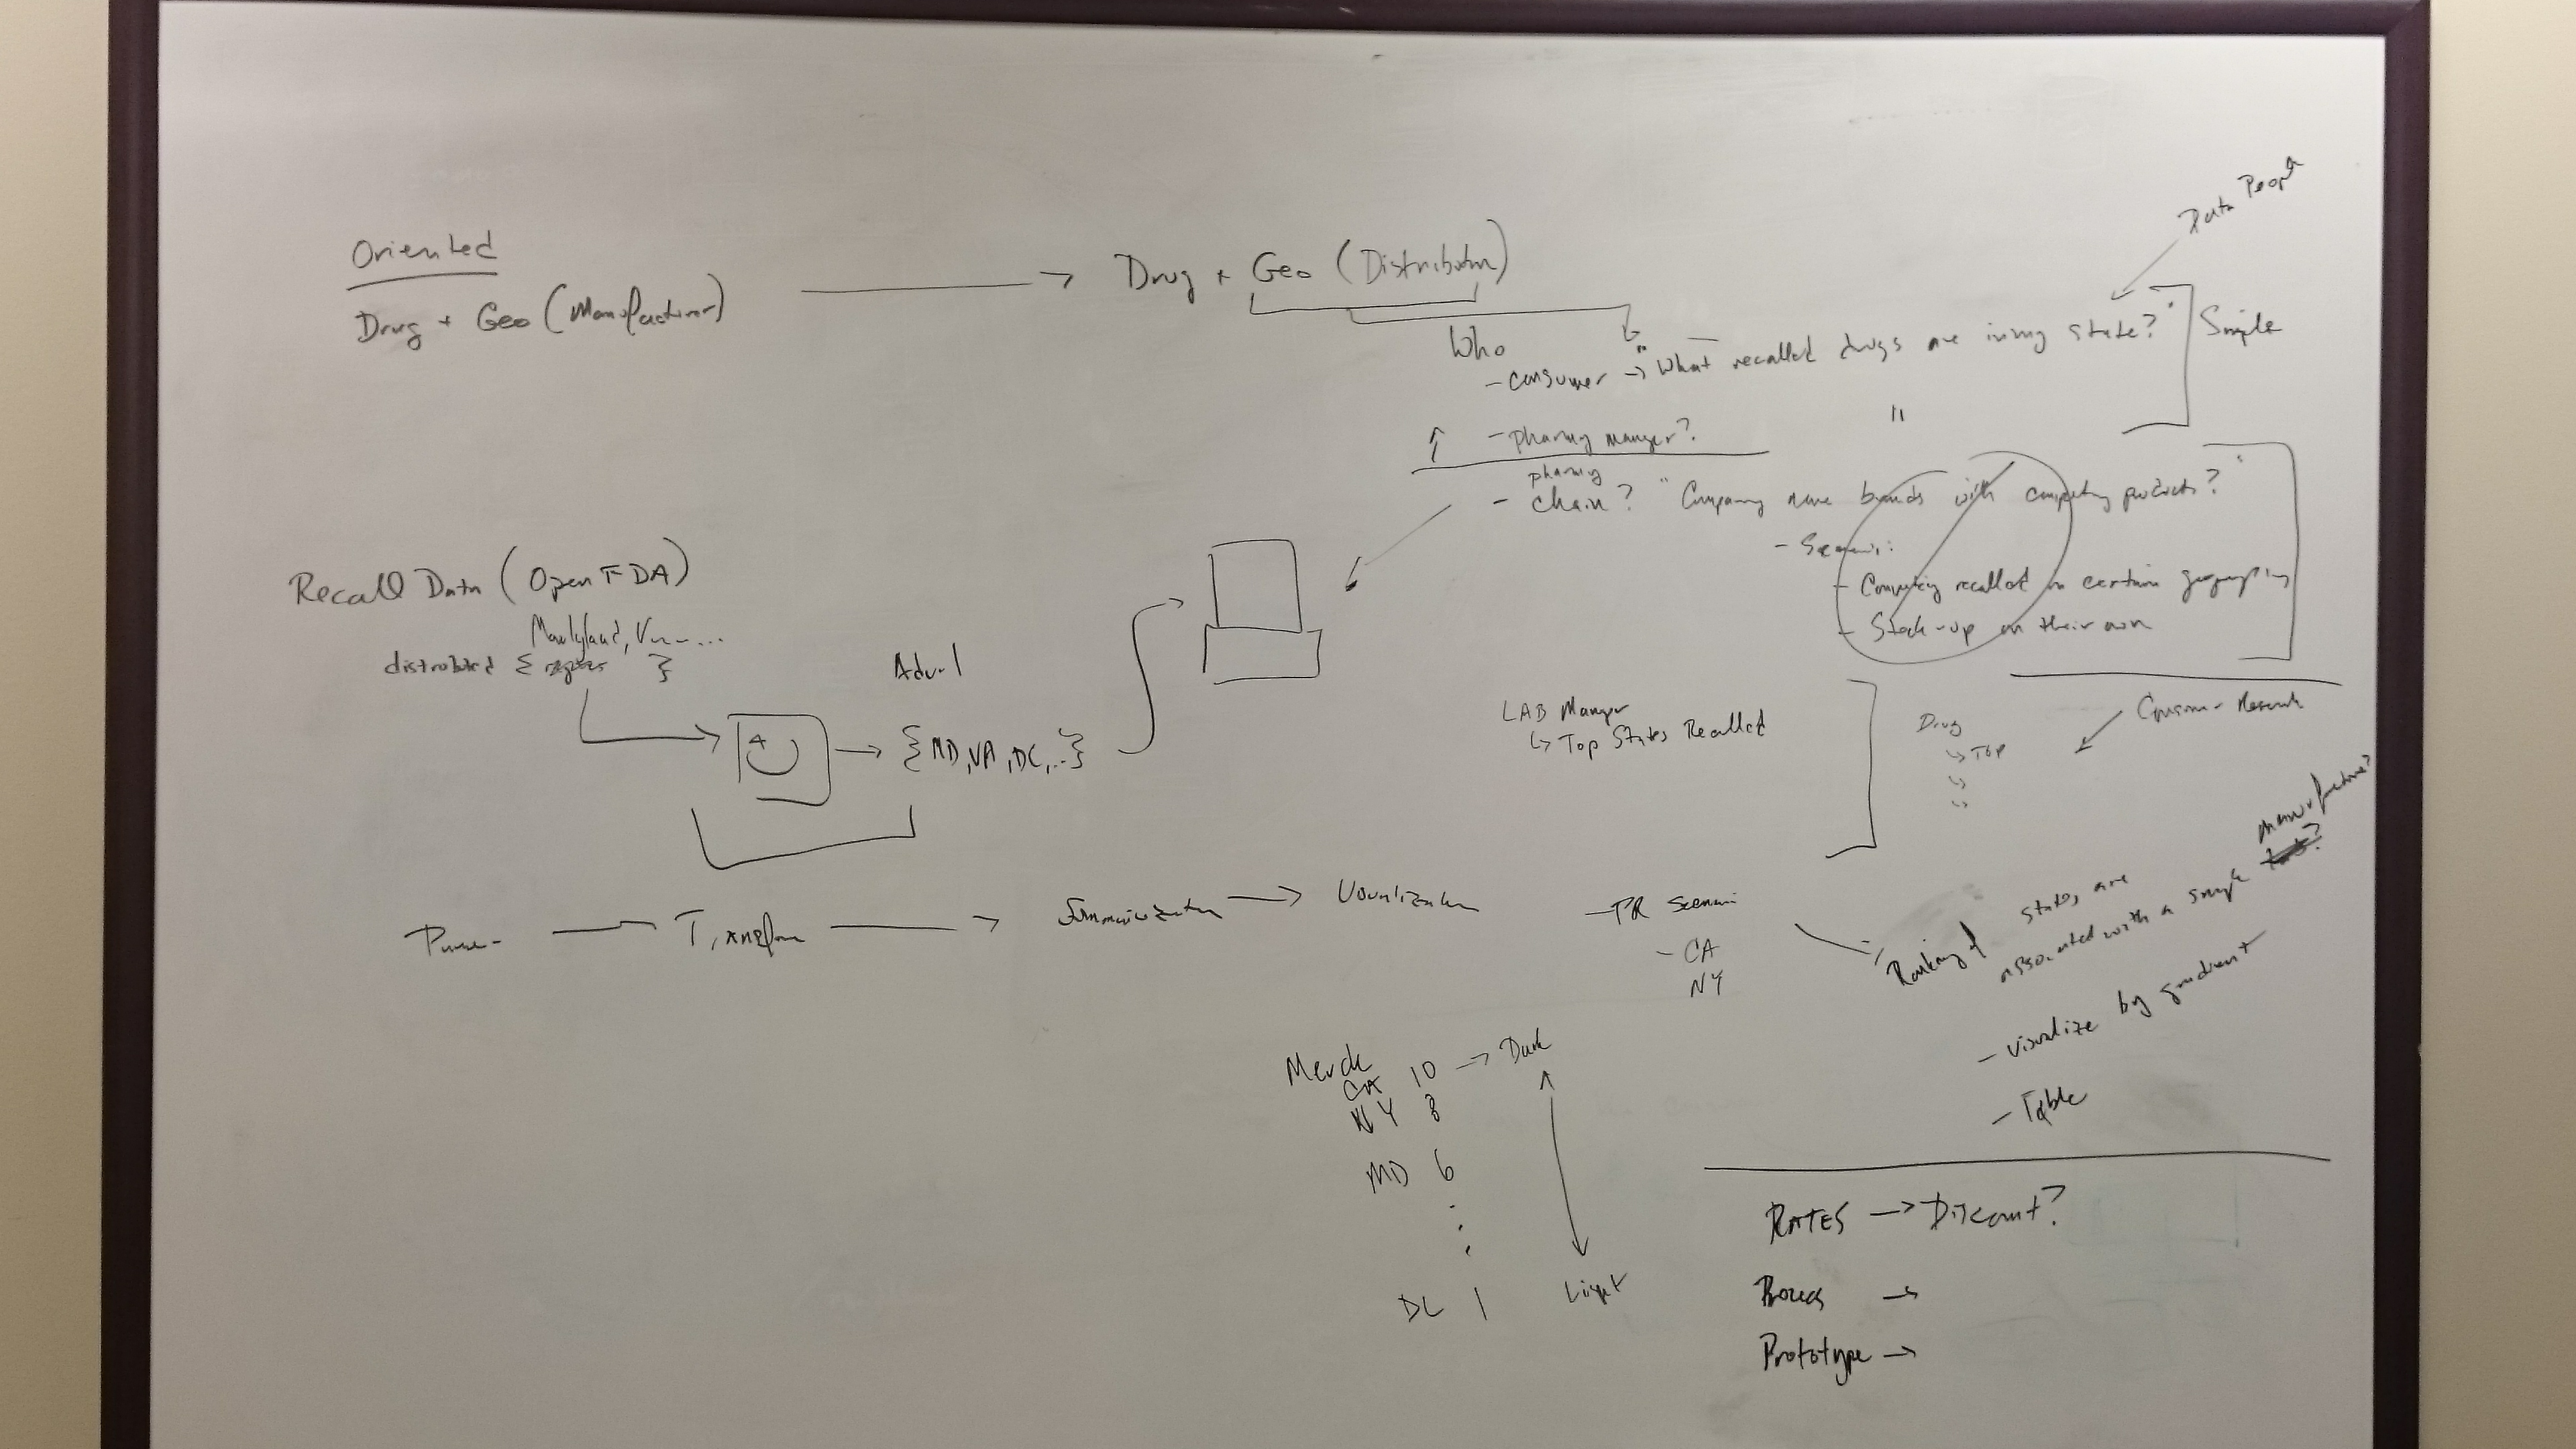 Oriented
Drug + Geo (Manufacturer)
Drug + Geo (Distribution)
Data People
Who
- consumer → "What recalled drugs are in my state?"
Simple
- pharmacy manager?
"
pharmacy
- chain? "Company name brands with competing products?"
- Scenario:
- Competing recalled in certain geography
- Stock-up on their own
Recall Data (Open FDA)
Maryland, V...
distributed { regions }
{MD, VA, DC, ...}
LAB Manager
↳ Top States Recalled
Drug
↳ TOP
Consumer Research
Transform
Summarization → Visualization
- PR Scenario
- CA
NY
Ranking of states, are
associated with a single
manufacturer?
- visualize by gradient
- Table
Merck
CA 10 → Dark
NY 8
MD 6
DC 1 Light
RATES → Discount?
Prototype →